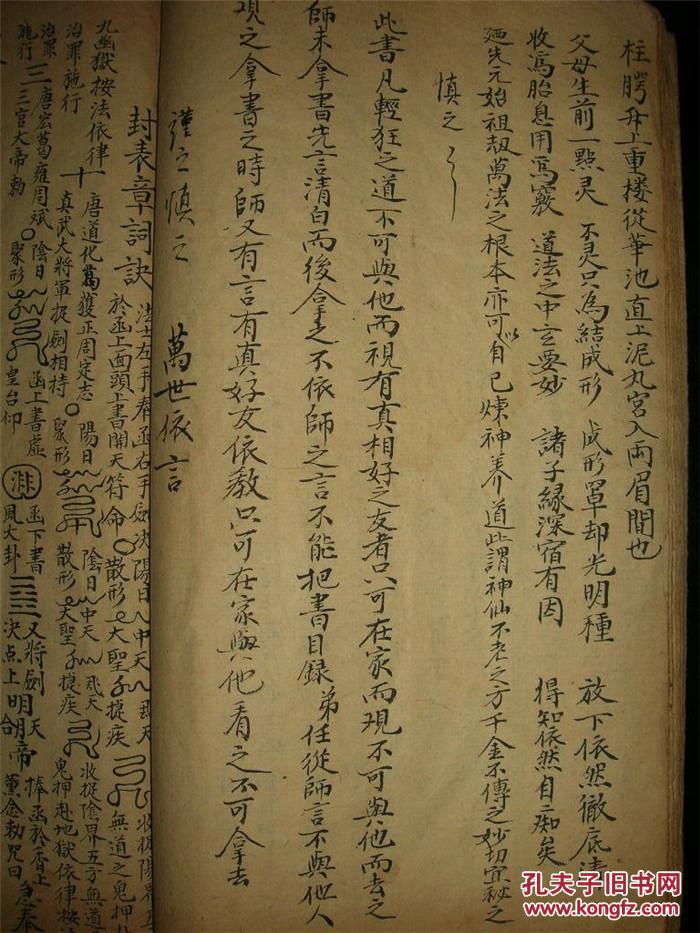 柱腭舟上重楼從華池直上泥丸宮入両眉間也
父母生前一點灵 不灵只為結成形 成形罩却光明種 放下依然徹底清
收為胎息用為竅 道法之中玄要妙 諸子緣深宿有因 得知依然自痴矣
廼先元始祖劫萬法之根本亦可以自己煉神养道此謂神仙不老之方千金不傳之妙切宜秘之
慎之
此書凡輕狂之道不可與他而視有真相好之友者只可在家而現不可與他而去之
師未拿書先言清白而後拿之不依師之言不能把書目録弟任從師言不與他人
現之拿書之時師又有言有真好友依教只可在家與他看之不可拿去
謹之慎之 萬世依言
封表章詞訣
法士左手奉函右手劍决陽日中天飛天
於函上面頭上書開天符命散形大聖捉疾收捉陽界
無道之鬼押
唐道化葛獲正周定志 陽日 陰日中天飛天收捉陰界五方無道
真武大將軍捉劍相持 聚形 散形天聖捉疾鬼押赴地獄依律按法
九幽獄按法依律
治罪施行
唐宏葛雍周斌 陰日 函上書虚 函下書 又將劍天 捧函於香上
三官大帝勅 聚形 皇台仰 風大卦 决点上明朝帝 薰念勅咒曰急奉
治罪
施行
孔夫子旧书网
www.kongfz.com